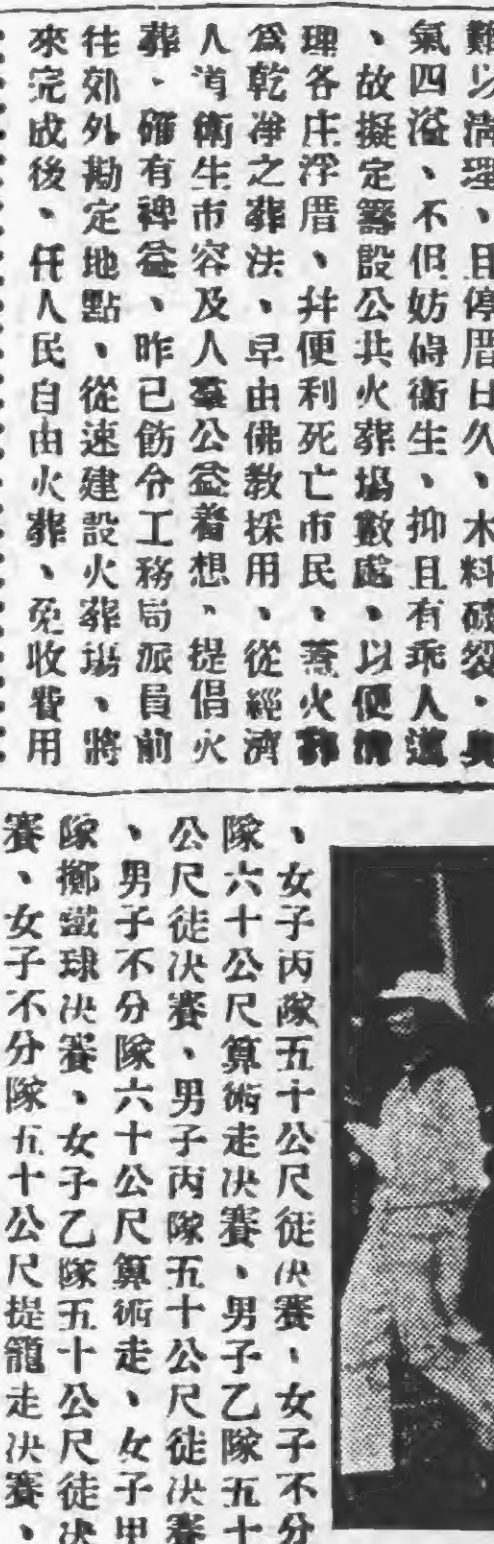 難以清理、且停厝日久、木料破裂、臭
氣四溢、不但妨碍衞生、抑且有乖人道
、故擬定籌設公共火葬塲數處、以便清
理各庄浮厝、幷便利死亡市民、蓋火葬
爲乾淨之葬法、早由佛敎採用、從經濟
人道衛生市容及人羣公益着想、提倡火
葬、確有裨益、昨已飭令工務局派員前
往郊外勘定地點、從速建設火葬塲、將
來完成後、任人民自由火葬、免收費用
、女子丙隊五十公尺徒決賽、女子不分
隊六十公尺算術走決賽、男子乙隊五十
公尺徒決賽、男子丙隊五十公尺徒決賽
、男子不分隊六十公尺算術走、女子甲
隊擲鐵球決賽、女子乙隊五十公尺徒決
賽、女子不分隊五十公尺提籠走決賽、